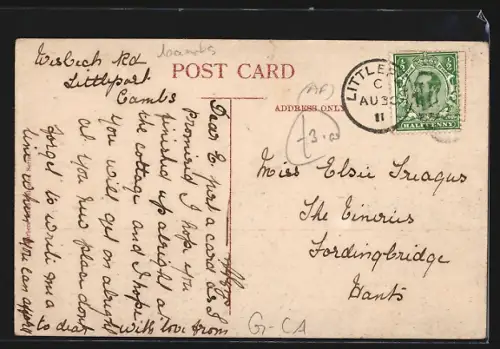 Wisbech Rd
Littleport
Cambs
Cambs
POST CARD
ADDRESS ONLY
LITTLEP
C
AU 30
11
HALFPENNY
3.00
Dear E just a card as I
promised I hope you
finished up alright at
the cottage and I hope
you will get on alright
at you new place dont
forget to write me a
line when you can
to dear with love from
Miss Elsie Treagus
The
Fordingbridge
Hants
G-CA